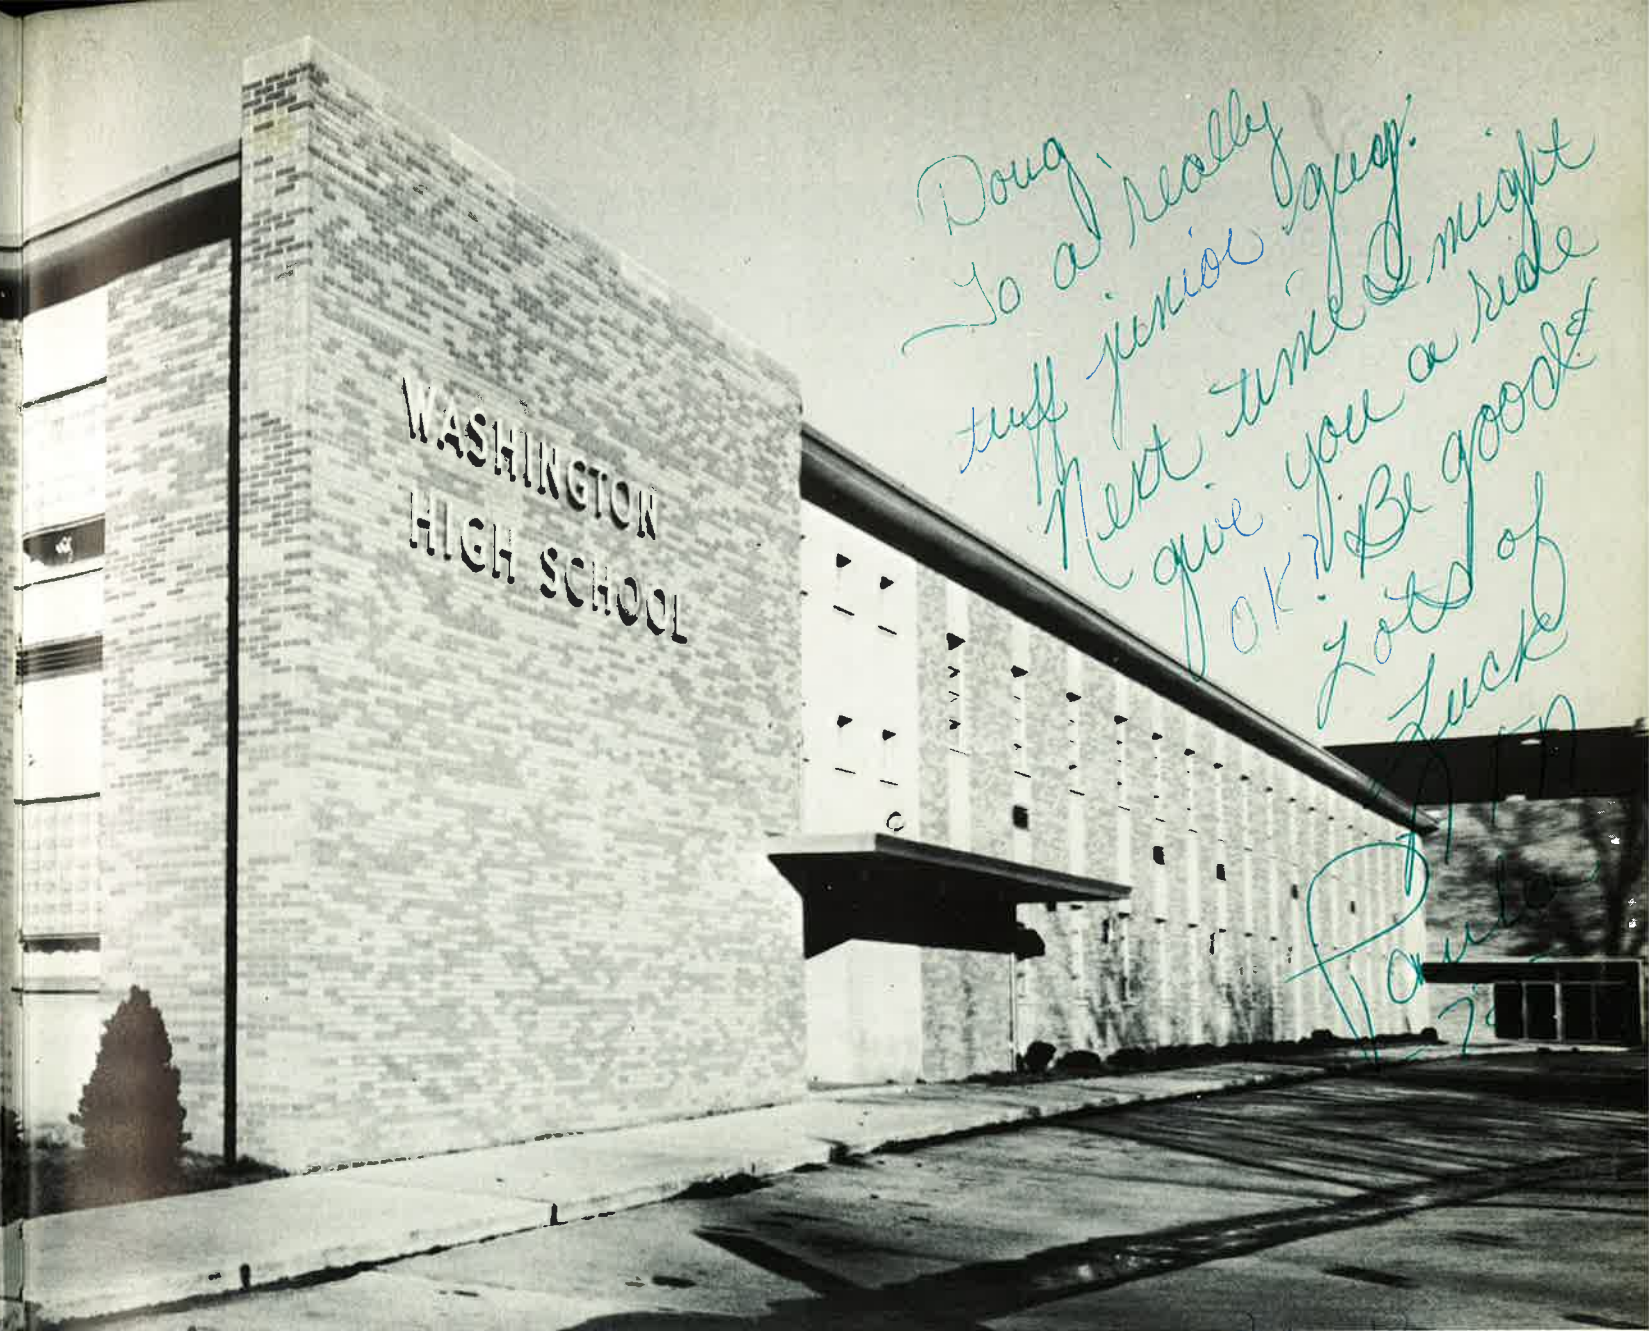 WASHINGTON
HIGH SCHOOL
Doug,
To a really
tuff junior guy.
Next time I might
give you a ride
OK? Be good &
Lots of
Luck
Paula